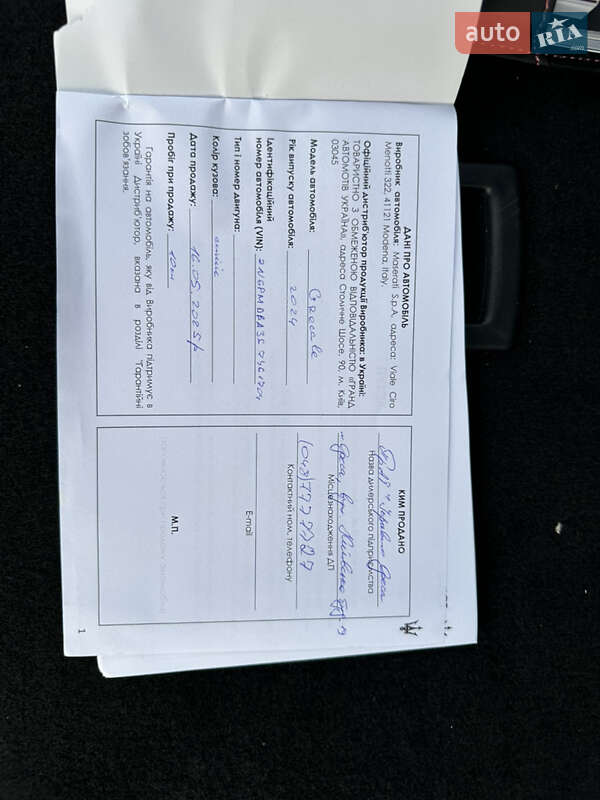 auto RIA
ДАНІ ПРО АВТОМОБІЛЬ
Виробник автомобіля: Maserati S.p.A. адреса: Viale Ciro
Menotti 322, 41121 Modena, Italy.
Офіційний дистриб'ютор продукції Виробника: в Україні:
ТОВАРИСТВО З ОБМЕЖЕНОЮ ВІДПОВІДАЛЬНІСТЮ «ГРАНД
АВТОМОТІВ УКРАЇНА», адреса Столичне Шосе, 90, м. Київ,
03045
Модель автомобіля: Grecale
Рік випуску автомобіля: 2024
Ідентифікаційний
номер автомобіля (VIN):
Тип і номер двигуна:
Колір кузова: синій
Дата продажу: 16.05.2025р
Пробіг при продажу: 10км
Гарантія на автомобіль, яку від Виробника підтримує в
Україні Дистриб'ютор, вказана в розділі "Гарантійні
зобов'язання.
КИМ ПРОДАНО
Назва дилерського підприємства
Місцезнаходження ДП
Контактний ном. телефону
E-mail
М.П.
1